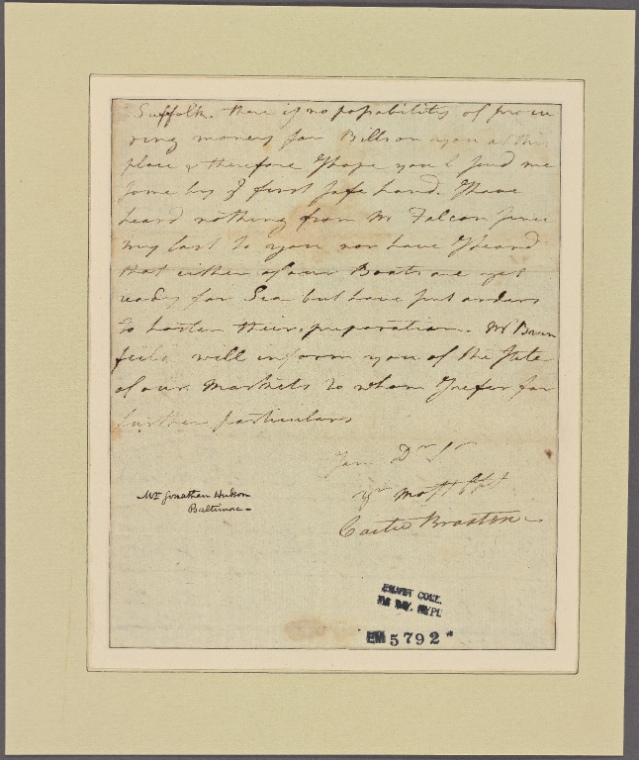 Suffolk. there is no possibility of procu
ring money for Bills on you at this
place & therefore I hope you'l send me
some by ye first safe hand. I have
heard nothing from Mr Falcon since
my last to you nor have I heard
that either of our Boats are yet
ready for Sea but have sent orders
to hasten their preparation. Mr
will inform you of the State
of our Markets to whom I refer for
further particulars
I am Dr Sr
yr Most
Carter Braxton
Mr Jonathan Hudson
Baltimore
EMMET COLL.
EM 5792